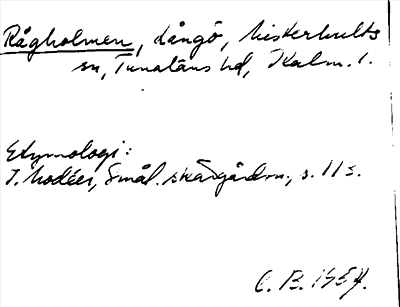 Rågholmen, långö, Misterhults
sn, Tunaläns hd, Kalm. l.
Etymologi:
I. Modéer, Smål. skärgårdsn., s. 113.
C. B. 1954.